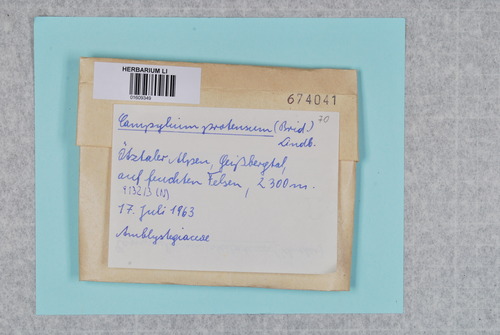 HERBARIUM LI
01609349
674041
Campylium protensum (Brid.) 70
Lindb.
Ötztaler Alpen, Gaißbergtal,
auf feuchten Felsen, 2300m.
9132/3 (N)
17. Juli 1963
Amblystegiaceae